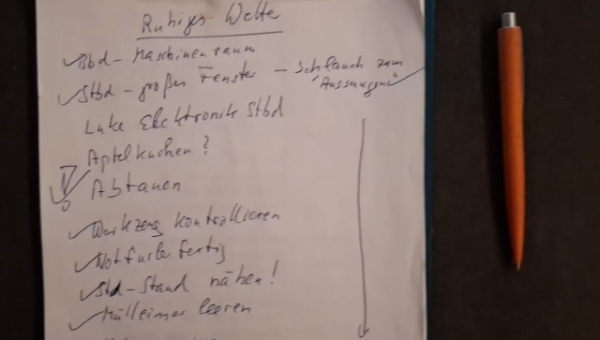 Ruhiges Wetter
Bbd - Maschinenraum
Stbd - großes Fenster - Schlauch zum "Aussaugen"
Luke Elektronik Stbd
Apfelkuchen?
Abtauen
Werkzeug kontrollieren
fertig
Stbd - Stand nähen!
Mülleimer leeren